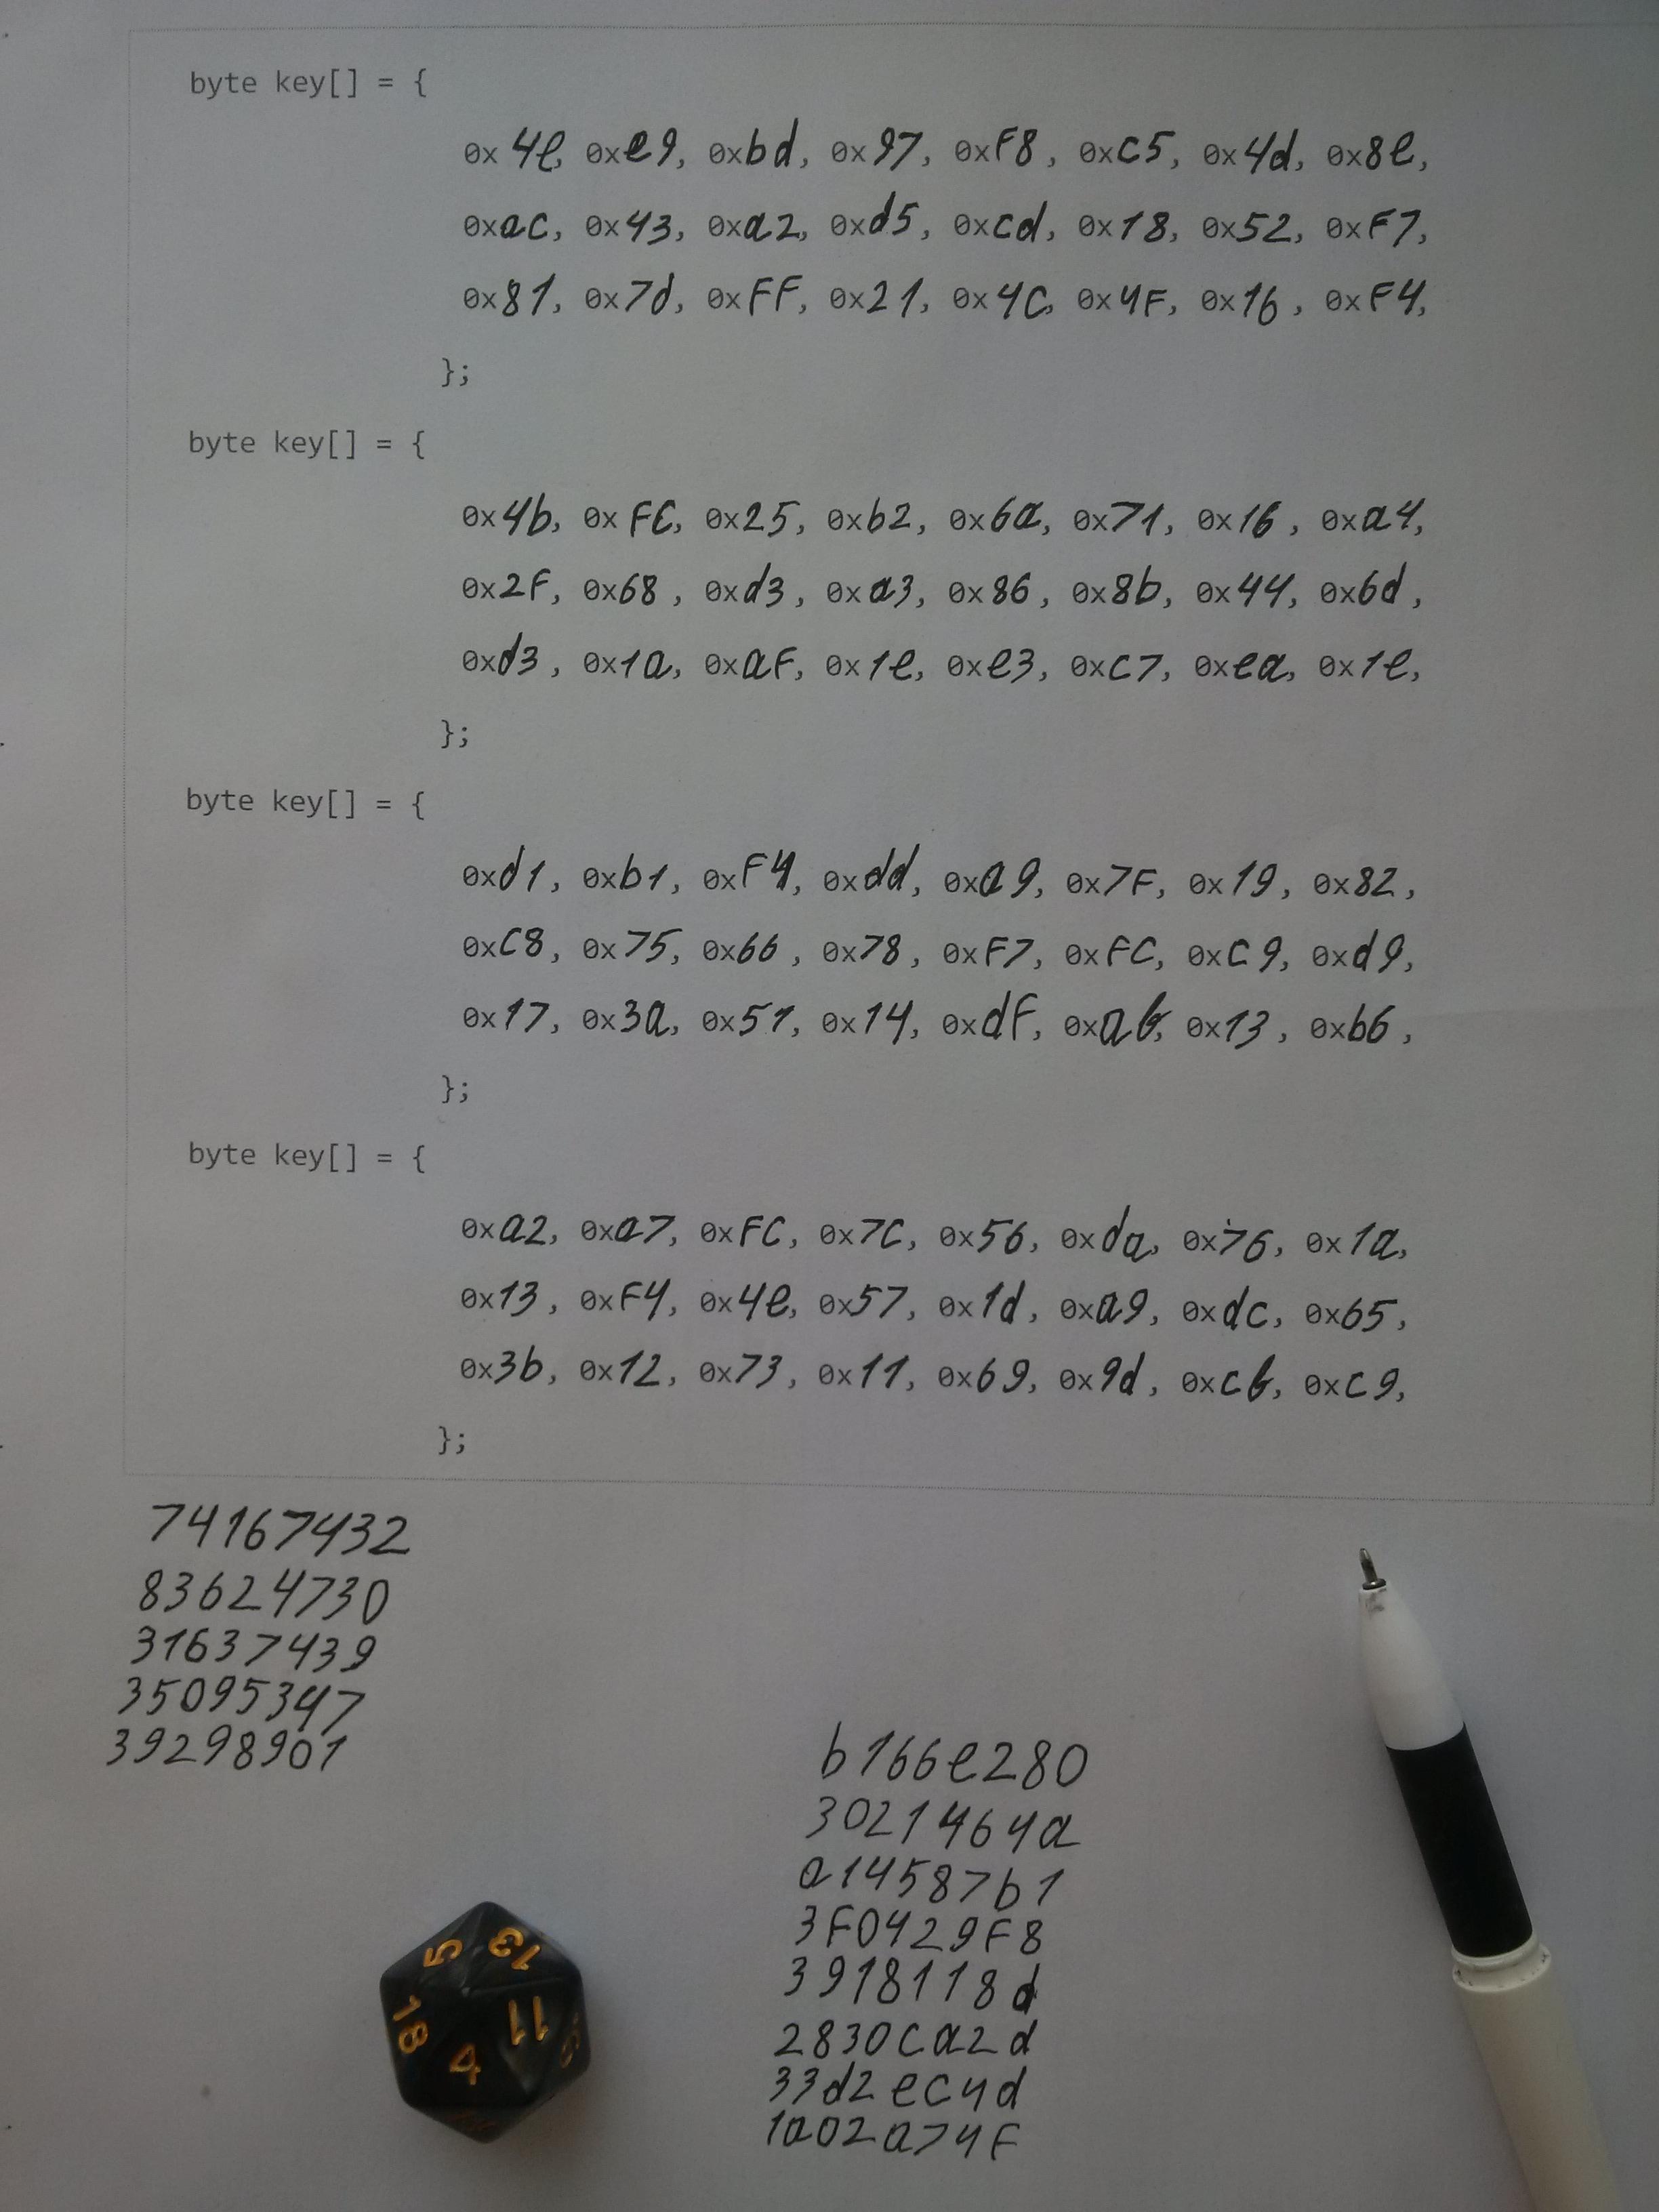 byte key[] = {
0x4e, 0xe9, 0xbd, 0x97, 0xF8, 0xC5, 0x4d, 0x8e,
0xac, 0x43, 0xa2, 0xd5, 0xcd, 0x18, 0x52, 0xF7,
0x81, 0x7d, 0xFF, 0x21, 0x4C, 0x4F, 0x16, 0xF4,
};
byte key[] = {
0x4b, 0xFC, 0x25, 0xb2, 0x6a, 0x71, 0x16, 0xa4,
0x2F, 0x68, 0xd3, 0xa3, 0x86, 0x8b, 0x44, 0x6d,
0xd3, 0x1a, 0xaF, 0x1e, 0xe3, 0xC7, 0xea, 0x1e,
};
byte key[] = {
0xd1, 0xb1, 0xF4, 0xdd, 0xa9, 0x7F, 0x19, 0x82,
0xC8, 0x75, 0x66, 0x78, 0xF7, 0xFC, 0xC9, 0xd9,
0x17, 0x3a, 0x51, 0x14, 0xdF, 0xab, 0x13, 0xb6,
};
byte key[] = {
0xa2, 0xa7, 0xFC, 0x7C, 0x56, 0xda, 0x76, 0x1a,
0x13, 0xF4, 0x4e, 0x57, 0x1d, 0xa9, 0xdc, 0x65,
0x3b, 0x12, 0x73, 0x11, 0x69, 0x9d, 0xcb, 0xC9,
};
74167432
83624730
31637439
35095347
39298901
b166e280
3021464a
a14587b1
3F0429F8
3918118d
2830ca2d
33d2ec4d
1a02a74F
5
13
18
11
4